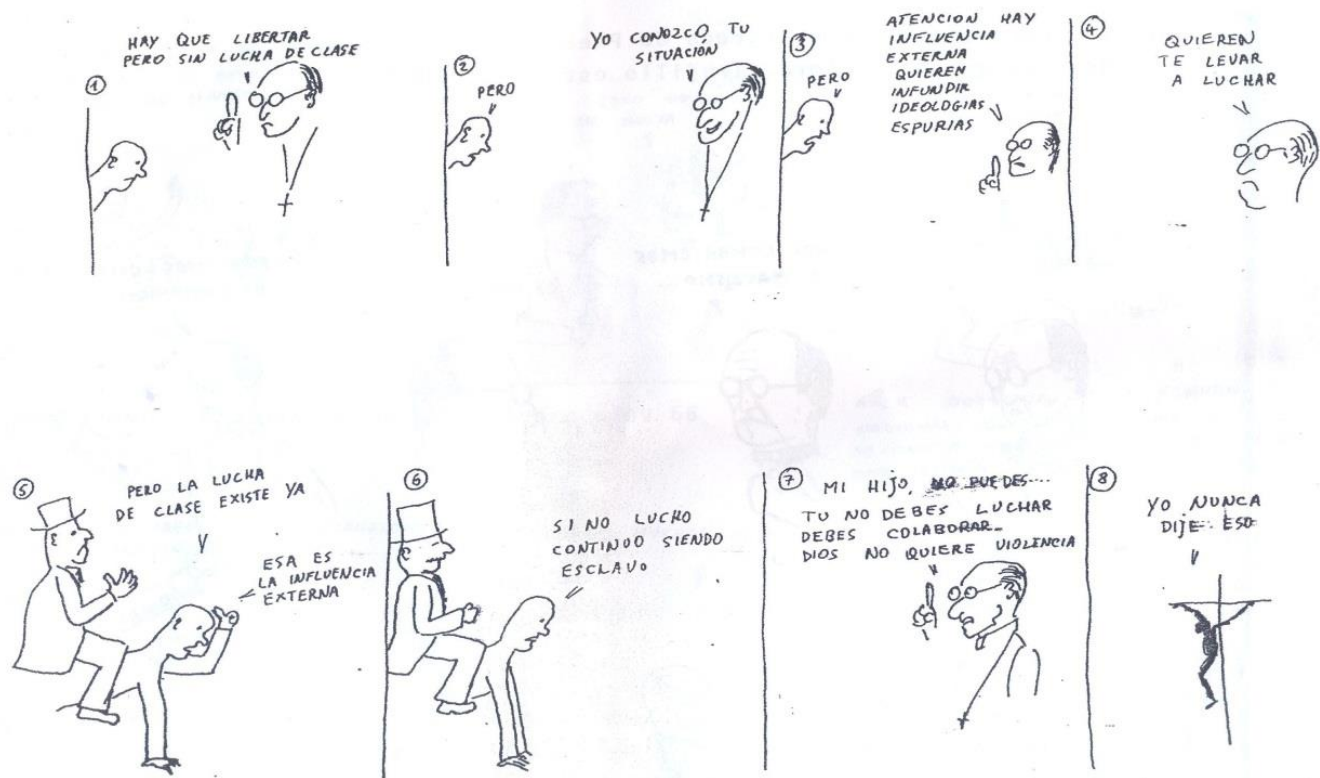 ①
HAY QUE LIBERTAR
PERO SIN LUCHA DE CLASE
②
PERO
YO CONOZCO TU
SITUACIÓN
③
PERO
ATENCION HAY
INFLUENCIA
EXTERNA
QUIEREN
INFUNDIR
IDEOLOGIAS
ESPURIAS
④
QUIEREN
TE LEVAR
A LUCHAR
⑤
PERO LA LUCHA
DE CLASE EXISTE YA
ESA ES
LA INFLUENCIA
EXTERNA
⑥
SI NO LUCHO
CONTINUO SIENDO
ESCLAVO
⑦
MI HIJO, NO PUEDES....
TU NO DEBES LUCHAR
DEBES COLABORAR_
DIOS NO QUIERE VIOLENCIA
⑧
YO NUNCA
DIJE ESO